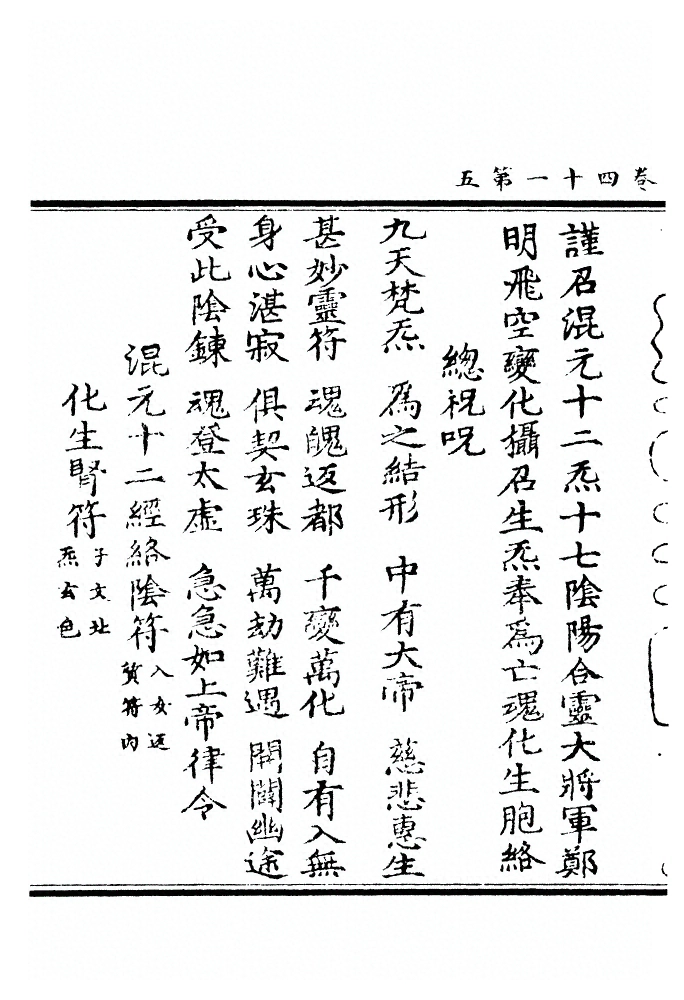 卷四十一第五
謹召混元十二炁十七陰陽合靈大將軍鄭
明飛空變化攝召生炁奉為亡魂化生胞絡
總祝呪
九天梵炁 為之結形 中有大帝 慈悲惠生
甚妙靈符 魂魄返都 千變萬化 自有入無
身心湛寂 俱契玄珠 萬劫難遇 開闢幽途
受此陰鍊 魂登太虛 急急如上帝律令
混元十二經絡陰符入女返質符內
化生腎符子文北炁玄色